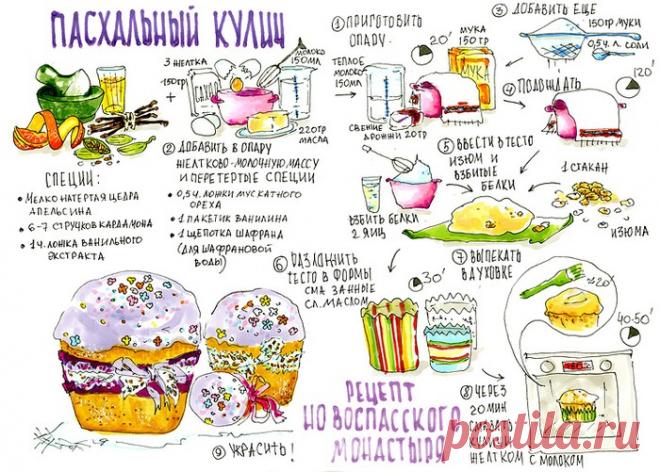 ПАСХАЛЬНЫЙ КУЛИЧ
СПЕЦИИ:
• МЕЛКО НАТЕРТАЯ ЦЕДРА
АПЕЛЬСИНА
• 6-7 СТРУЧКОВ КАРДАМОНА
• 1 Ч. ЛОЖКА ВАНИЛЬНОГО
ЭКСТРАКТА
3 ЖЕЛТКА
150гр
САХАР
МОЛОКО
150МЛ
220гр
МАСЛА
② ДОБАВИТЬ В ОПАРУ
ЖЕЛТКОВО-МОЛОЧНУЮ МАССУ
И ПЕРЕТЕРТЫЕ СПЕЦИИ
• 0,5 Ч. ЛОЖКИ МУСКАТНОГО
ОРЕХА
• 1 ПАКЕТИК ВАНИЛИНА
• 1 ЩЕПОТКА ШАФРАНА
(ДЛЯ ШАФРАНОВОЙ
ВОДЫ)
① ПРИГОТОВИТЬ
ОПАРУ
20'
ТЕПЛОЕ
МОЛОКО
150МЛ
МУКА
150 ГР
МУКА
СВЕЖИЕ
ДРОЖЖИ 20ГР
③ ДОБАВИТЬ ЕЩЕ
150ГР МУКИ
0,5 Ч. Л. СОЛИ
④ ПОДЫШАТЬ
120'
⑤ ВВЕСТИ В ТЕСТО
ИЗЮМ И
ВЗБИТЫЕ
БЕЛКИ
1 СТАКАН
ИЗЮМА
ВЗБИТЬ БЕЛКИ
2 ЯИЦ
⑥ РАЗЛОЖИТЬ
ТЕСТО В ФОРМЫ
СМАЗАННЫЕ
СЛ. МАСЛОМ
30'
⑦ ВЫПЕКАТЬ
В ДУХОВКЕ
20'
40-50'
⑧ ЧЕРЕЗ
20 МИН
СМАЗАТЬ
ЖЕЛТКОМ С МОЛОКОМ
⑨ УКРАСИТЬ!
РЕЦЕПТ
НОВОСПАССКОГО
МОНАСТЫРЯ
postila.ru